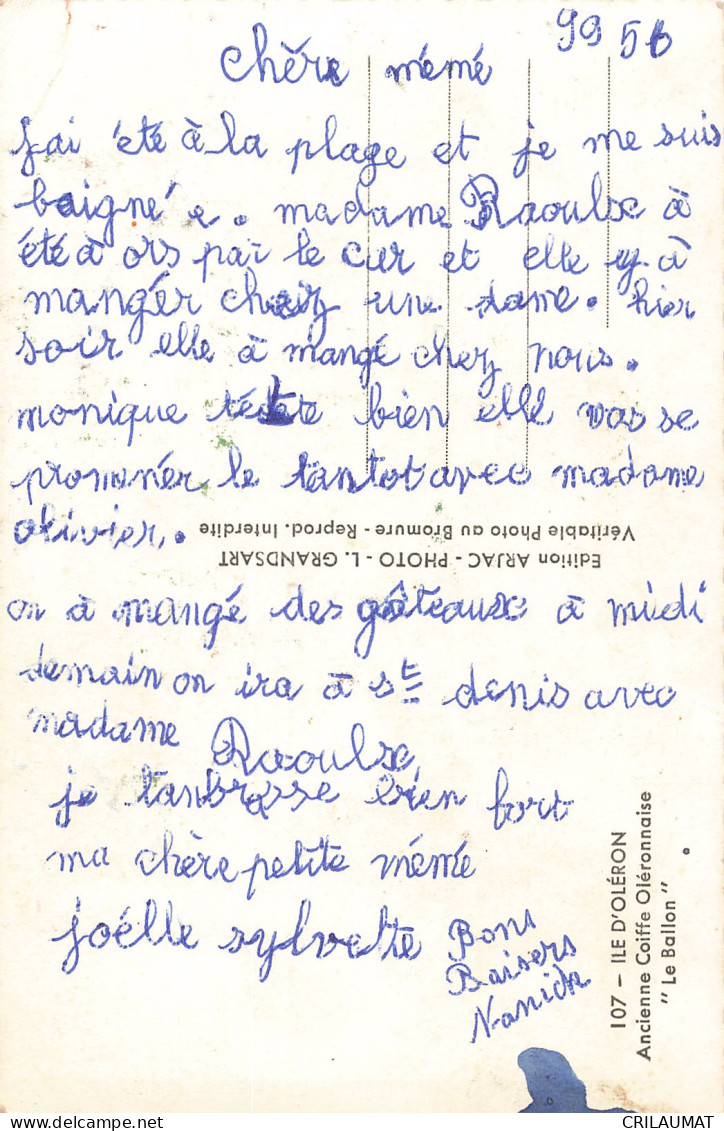 99 56
chère mémé
j'ai été à la plage et je me suis
baigné e. madame Raoulx à
été à ors par le car et elle y à
mangér chez une dame. hier
soir elle à mangé chez nous.
monique tétete bien elle vas se
promenér le tantot avec madame
olivier.
Edition ARJAC - PHOTO - L. GRANDSART
Véritable Photo au Bromure - Reprod. Interdite
on à mangé des gâteaux à midi
demain on ira à st denis avec
madame Raoulx
je tanbrasse bien fort
ma chère petite mémé
joëlle sylvette
Bons
Baisers
Nanick
107 - ILE D'OLÉRON
Ancienne Coiffe Oléronnaise
" Le Ballon "
CRILAUMAT